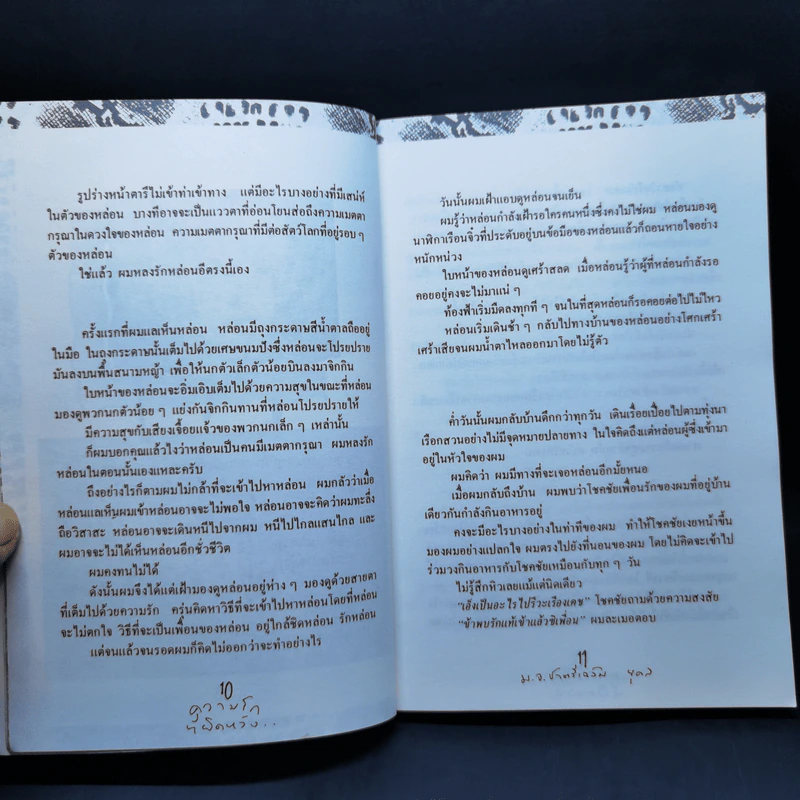 รูปร่างหน้าตารึไม่เข้าท่าเข้าทาง แต่มีอะไรบางอย่างที่มีเสน่ห์
ในตัวของหล่อน บางทีอาจจะเป็นแววตาที่อ่อนโยนส่อถึงความเมตตา
กรุณาในดวงใจของหล่อน ความเมตตากรุณาที่มีต่อสัตว์โลกที่อยู่รอบๆ
ตัวของหล่อน
ใช่แล้ว ผมหลงรักหล่อนอีตรงนี้เอง
ครั้งแรกที่ผมแลเห็นหล่อน หล่อนมีถุงกระดาษสีน้ำตาลถืออยู่
ในมือ ในถุงกระดาษนั้นเต็มไปด้วยเศษขนมปังซึ่งหล่อนจะโปรยปราย
มันลงบนพื้นสนามหญ้า เพื่อให้นกตัวเล็กตัวน้อยบินลงมาจิกกิน
ใบหน้าของหล่อนจะอิ่มเอิบเต็มไปด้วยความสุขในขณะที่หล่อน
มองดูพวกนกตัวน้อยๆ แย่งกันจิกกินทานที่หล่อนโปรยปรายให้
มีความสุขกับเสียงเจื้อยแจ้วของพวกนกเล็กๆ เหล่านั้น
ก็ผมบอกคุณแล้วไงว่าหล่อนเป็นคนมีเมตตากรุณา ผมหลงรัก
หล่อนในตอนนั้นเองแหละครับ
ถึงอย่างไรก็ตามผมไม่กล้าที่จะเข้าไปหาหล่อน ผมกลัวว่าเมื่อ
หล่อนแลเห็นผมเข้าหล่อนอาจจะไม่พอใจ หล่อนอาจจะคิดว่าผมทะลึ่ง
ถือวิสาสะ หล่อนอาจจะเดินหนีไปจากผม หนีไปไกลแสนไกล และ
ผมอาจจะไม่ได้เห็นหล่อนอีกชั่วชีวิต
ผมคงทนไม่ได้
ดังนั้นผมจึงได้แต่เฝ้ามองดูหล่อนอยู่ห่างๆ มองดูด้วยสายตา
ที่เต็มไปด้วยความรัก ครุ่นคิดหาวิธีที่จะเข้าไปหาหล่อนโดยที่หล่อน
จะไม่ตกใจ วิธีที่จะเป็นเพื่อนของหล่อน อยู่ใกล้ชิดหล่อน รักหล่อน
แต่จนแล้วจนรอดผมก็คิดไม่ออกว่าจะทำอย่างไร
10
ความรัก
ที่ผิดหวัง..
วันนั้นผมเฝ้าแอบดูหล่อนจนเย็น
ผมรู้ว่าหล่อนกำลังเฝ้ารอใครคนหนึ่งซึ่งคงไม่ใช่ผม หล่อนมองดู
นาฬิกาเรือนจิ๋วที่ประดับอยู่บนข้อมือของหล่อนแล้วก็ถอนหายใจอย่าง
หนักหน่วง
ใบหน้าของหล่อนดูเศร้าสลด เมื่อหล่อนรู้ว่าผู้ที่หล่อนกำลังรอ
คอยอยู่คงจะไม่มาแน่ๆ
ท้องฟ้าเริ่มมืดลงทุกทีๆ จนในที่สุดหล่อนก็รอคอยต่อไปไม่ไหว
หล่อนเริ่มเดินช้าๆ กลับไปทางบ้านของหล่อนอย่างโศกเศร้า
เศร้าเสียจนผมน้ำตาไหลออกมาโดยไม่รู้ตัว
ค่ำวันนั้นผมกลับบ้านดึกกว่าทุกวัน เดินเรื่อยเปื่อยไปตามทุ่งนา
เรือกสวนอย่างไม่มีจุดหมายปลายทาง ในใจคิดถึงแต่หล่อนผู้ซึ่งเข้ามา
อยู่ในหัวใจของผม
ผมคิดว่า ผมมีทางที่จะเจอหล่อนอีกมั้ยหนอ
เมื่อผมกลับถึงบ้าน ผมพบว่าโชคชัยเพื่อนรักของผมที่อยู่บ้าน
เดียวกันกำลังกินอาหารอยู่
คงจะมีอะไรบางอย่างในท่าทีของผม ทำให้โชคชัยเงยหน้าขึ้น
มองผมอย่างแปลกใจ ผมตรงไปยังที่นอนของผม โดยไม่คิดจะเข้าไป
ร่วมวงกินอาหารกับโชคชัยเหมือนกับทุกๆ วัน
ไม่รู้สึกหิวเลยแม้แต่นิดเดียว
"เฮ้งเป็นอะไรไปรึวะเรืองเดช" โชคชัยถามด้วยความสงสัย
"ข้าพบรักแท้เข้าแล้วซิเพื่อน" ผมละเมอตอบ
11
ม.จ.ชาตรีเฉลิม ยุคล